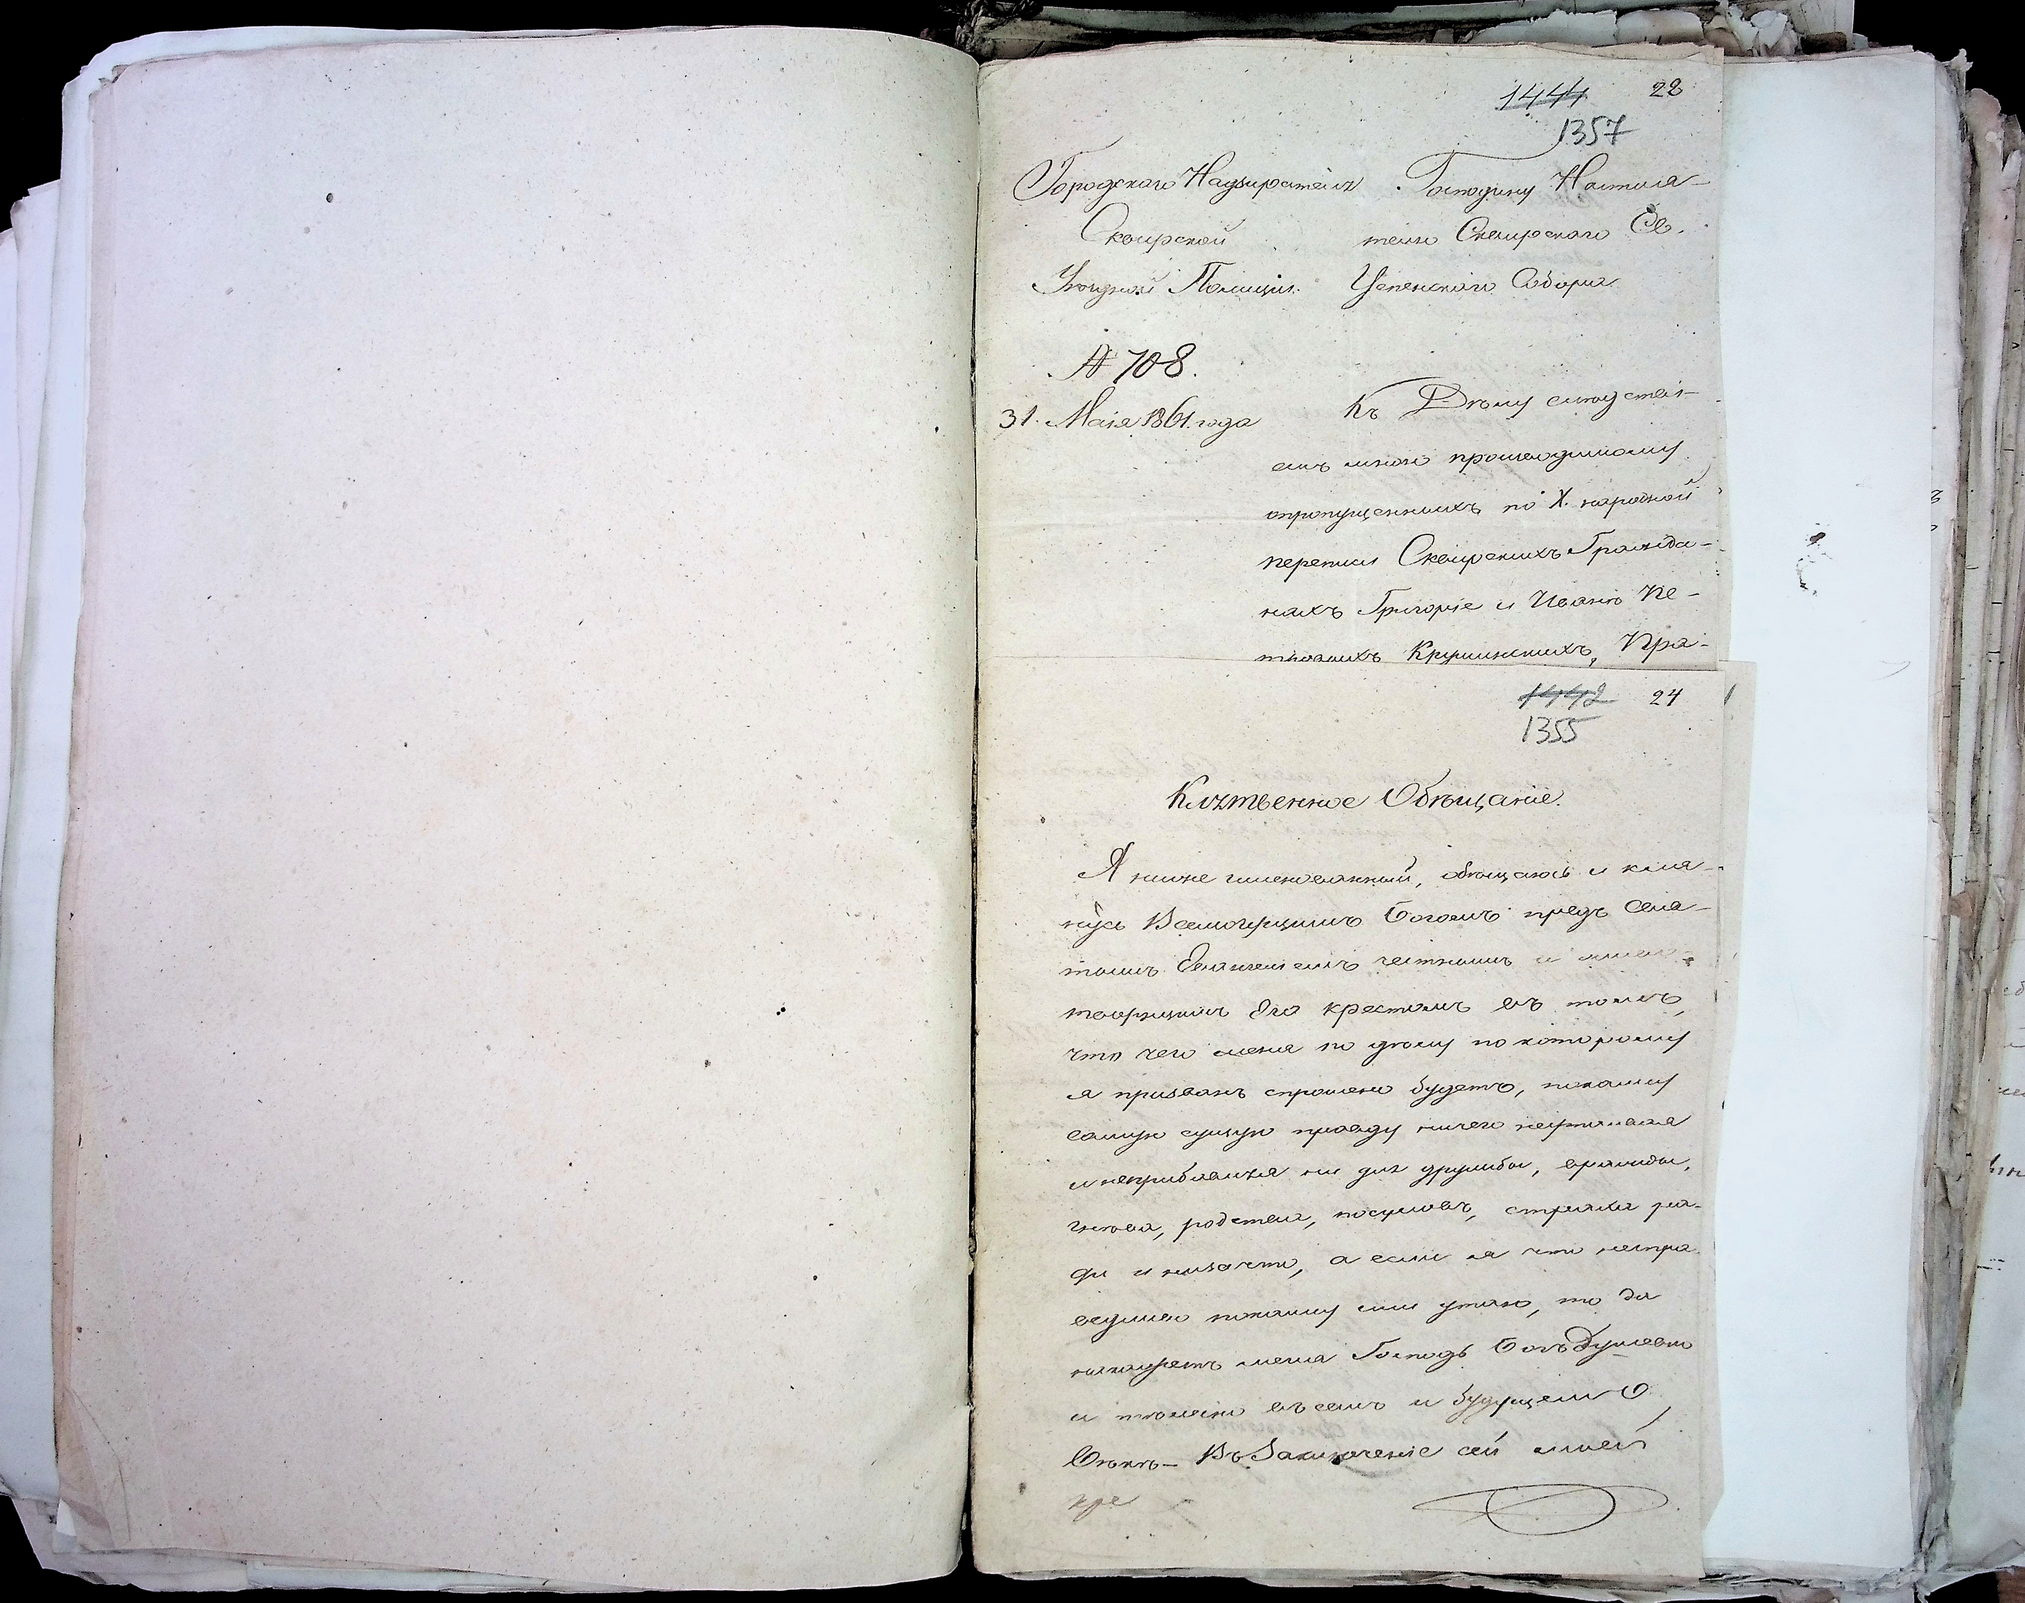 1444 28
1357
Городскаго Надзирателя
Сквирской
Уѣздной Полиціи.
№ 708.
31. Маія 1861 года
Господину Настоя-
телю Сквирскаго Св.
Успенскаго Собора
Къ Дѣлу слѣдствен-
емъ мною производимому
опропущенныхъ по X. народной
переписи Сквирскихъ Гражда-
нахъ Григоріе и Иванѣ Пе-
тровыхъ Крушинскихъ, Пра-
1442 24
1355
Клятвенное Обѣщаніе.
Я ниже именованный, обѣщаюсь и кля-
нусь Всемогущимъ Богомъ предъ Свя-
тымъ Евангеліемъ честнымъ и живо-
творящимъ Его крестомъ въ томъ,
что чего меня по дѣлу по которому
я призванъ спрошено будетъ, покажу
самую сущую правду ничего неутаивая
и неприбавляя ни для дружбы, вражды,
гнѣва, родства, посуловъ, страха ра-
ди и низачто, а если я что непра-
ведливо покажу или утаю, то да
накажетъ меня Господь Богъ Душевно
и тѣлесно въ семъ и будущемъ
Вѣкѣ- Въ Заключеніе сей моей
кре